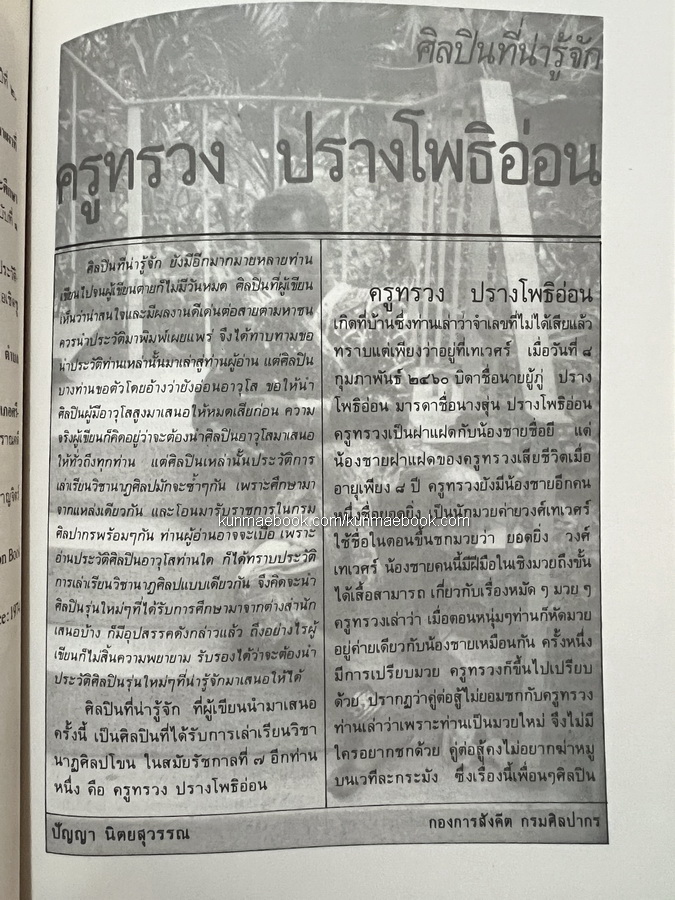 ศิลปินที่น่ารู้จัก
ครูทรวง ปรางโพธิอ่อน
ศิลปินที่น่ารู้จัก ยังมีอีกมากมายหลายท่าน
เขียนไปจนผู้เขียนตายก็ไม่มีวันหมด ศิลปินที่ผู้เขียน
เห็นว่าน่าสนใจและมีผลงานดีเด่นต่อสายตามหาชน
ควรนำประวัติมาพิมพ์เผยแพร่ จึงได้ทาบทามขอ
นำประวัติท่านเหล่านั้นมาเล่าสู่ท่านผู้อ่าน แต่ศิลปิน
บางท่านขอตัวโดยอ้างว่ายังอ่อนอาวุโส ขอให้นำ
ศิลปินผู้มีอาวุโสสูงมาเสนอให้หมดเสียก่อน ความ
จริงผู้เขียนก็คิดอยู่ว่าจะต้องนำศิลปินอาวุโสมาเสนอ
ให้ทั่วถึงทุกท่าน แต่ศิลปินเหล่านั้นประวัติการ
เล่าเรียนวิชานาฏศิลปมักจะซ้ำๆกัน เพราะศึกษามา
จากแหล่งเดียวกัน และโอนมารับราชการในกรม
ศิลปากรพร้อมๆกัน ท่านผู้อ่านอาจจะเบื่อ เพราะ
อ่านประวัติศิลปินอาวุโสท่านใด ก็ได้ทราบประวัติ
การเล่าเรียนวิชานาฏศิลปแบบเดียวกัน จึงคิดจะนำ
ศิลปินรุ่นใหม่ๆที่ได้รับการศึกษามาจากต่างสำนัก
เสนอบ้าง ก็มีอุปสรรคดังกล่าวแล้ว ถึงอย่างไรผู้
เขียนก็ไม่สิ้นความพยายาม รับรองได้ว่าจะต้องนำ
ประวัติศิลปินรุ่นใหม่ๆที่น่ารู้จักมาเสนอให้ได้
ศิลปินที่น่ารู้จัก ที่ผู้เขียนนำมาเสนอ
ครั้งนี้ เป็นศิลปินที่ได้รับการเล่าเรียนวิชา
นาฏศิลปโขน ในสมัยรัชกาลที่ ๗ อีกท่าน
หนึ่ง คือ ครูทรวง ปรางโพธิอ่อน
ครูทรวง ปรางโพธิอ่อน
เกิดที่บ้านซึ่งท่านเล่าว่าจำเลขที่ไม่ได้เสียแล้ว
ทราบแต่เพียงว่าอยู่ที่เทเวศร์ เมื่อวันที่ ๘
กุมภาพันธ์ ๒๔๖๐ บิดาชื่อนายผู้ภู่ ปราง
โพธิอ่อน มารดาชื่อนางสุ่น ปรางโพธิอ่อน
ครูทรวงเป็นฝาแฝดกับน้องชายชื่อยี แต่
น้องชายฝาแฝดของครูทรวงเสียชีวิตเมื่อ
อายุเพียง ๘ ปี ครูทรวงยังมีน้องชายอีกคน
หนึ่งชื่อยอดยิ่ง เป็นนักมวยค่ายวงศ์เทเวศร์
ใช้ชื่อในตอนขึ้นชกมวยว่า ยอดยิ่ง วงศ์
เทเวศร์ น้องชายคนนี้มีฝีมือในเชิงมวยถึงขั้น
ได้เสื้อสามารถ เกี่ยวกับเรื่องหมัด ๆ มวย ๆ
ครูทรวงเล่าว่า เมื่อตอนหนุ่มๆท่านก็หัดมวย
อยู่ค่ายเดียวกับน้องชายเหมือนกัน ครั้งหนึ่ง
มีการเปรียบมวย ครูทรวงก็ขึ้นไปเปรียบ
ด้วย ปรากฏว่าคู่ต่อสู้ไม่ยอมชกกับครูทรวง
ท่านเล่าว่าเพราะท่านเป็นมวยใหม่ จึงไม่มี
ใครอยากชกด้วย คู่ต่อสู้คงไม่อยากฆ่าหมู
บนเวทีละกระมัง ซึ่งเรื่องนี้เพื่อนๆศิลปิน
ปัญญา นิตยสุวรรณ
กองการสังคีต กรมศิลปากร
kunmaebook.com/kunmaebook.com